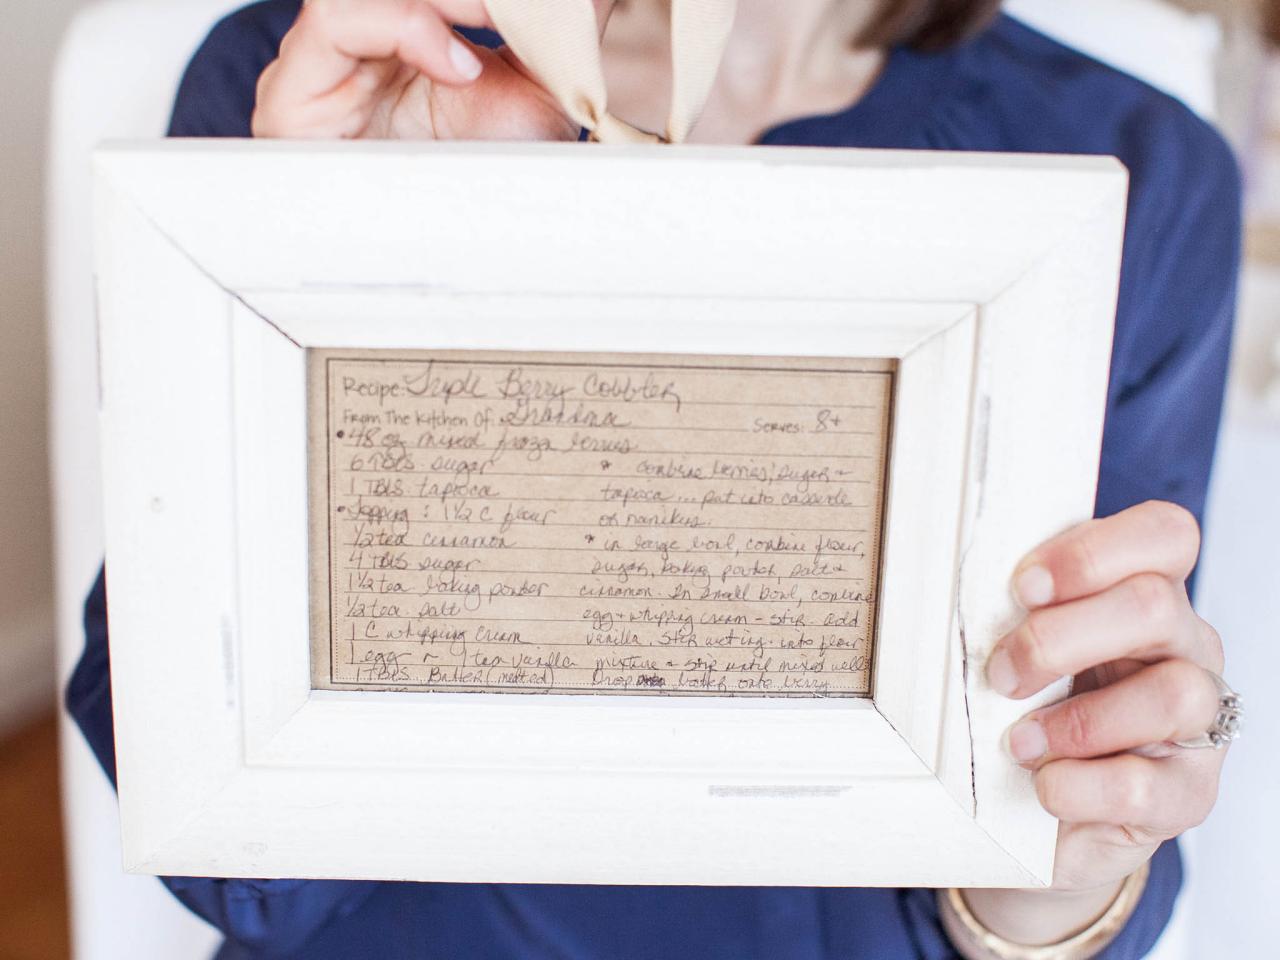 Recipe: Triple Berry Cobbler
From The Kitchen Of: Grandma Serves: 8+
• 48 oz mixed froza berries
6 TBLS sugar * combine berries, sugar +
1 TBLS. tapioca tapioca ... put into casserole
• Topping : 1 1/2 C flour or
1/2 tea cinnamon * in large bowl, combine flour,
4 TBLS sugar sugar, baking powder, salt +
1 1/2 tea baking powder cinnamon. In small bowl, combine
1/2 tea salt egg + whipping cream - stir. add
1 C whipping cream vanilla. Stir into flour
1 egg 1 tea vanilla mixture + stir until mixed well
1 TBLS. Butter (melted) Drop batter onto berry